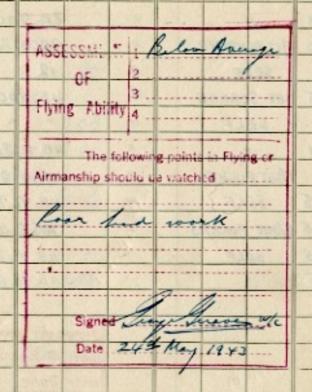 ASSESSMENT 1 Below Average
OF 2
3
Flying Ability 4
The following points in Flying or
Airmanship should be watched
Poor work
Signed W/C
Date 24th May 1943